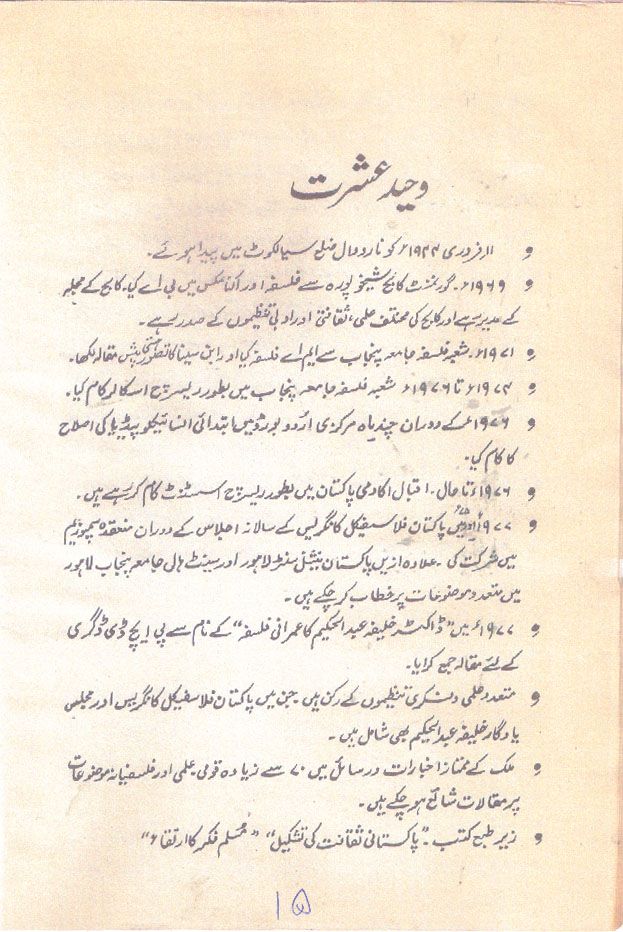 وحید عشرت
۱۱ فروری ۱۹۴۴ء کو نارووال ضلع سیالکوٹ میں پیدا ہوئے۔
۱۹۶۹ء۔ گورنمنٹ کالج شیخوپورہ سے فلسفہ اور اکنامکس میں بی اے کیا۔ کالج کے مجلہ
کے مدیر رہے اور کالج کی مختلف علمی، ثقافتی اور ادبی تنظیموں کے صدر رہے۔
۱۹۷۱ء۔ شعبہ فلسفہ جامعہ پنجاب سے ایم اے فلسفہ کیا اور ابن سینا کا تصور مقالہ لکھا۔
۱۹۷۴ء تا ۱۹۷۶ء شعبہ فلسفہ جامعہ پنجاب میں بطور ریسرچ اسکالر کام کیا۔
۱۹۷۶ء کے دوران چند ماہ مرکزی اردو بورڈ میں ابتدائی انسائیکلوپیڈیا کی اصلاح
کا کام کیا۔
۱۹۷۶ء تا حال۔ اقبال اکادمی پاکستان میں بطور ریسرچ اسسٹنٹ کام کر رہے ہیں۔
۱۹۷۷ میں پاکستان فلاسفیکل کانگریس کے سالانہ اجلاس کے دوران منعقدہ سمپوزیم
میں شرکت کی۔ علاوہ ازیں پاکستان نیشنل سنٹر لاہور اور سینٹ ہال جامعہ پنجاب لاہور
میں متعدد موضوعات پر خطاب کر چکے ہیں۔
۱۹۷۷ء میں "ڈاکٹر خلیفہ عبدالحکیم کا عمرانی فلسفہ" کے نام سے پی ایچ ڈی ڈگری
کے لئے مقالہ جمع کرایا۔
متعدد علمی و فکری تنظیموں کے رکن ہیں جن میں پاکستان فلاسفیکل کانگریس اور مجلس
یادگار خلیفہ عبدالحکیم بھی شامل ہیں۔
ملک کے ممتاز اخبارات و رسائل میں ۷۰ سے زیادہ قومی علمی اور فلسفیانہ موضوعات
پر مقالات شائع ہو چکے ہیں۔
زیر طبع کتب۔ "پاکستانی ثقافت کی تشکیل" "مسلم فکر کا ارتقاء"
۱۵